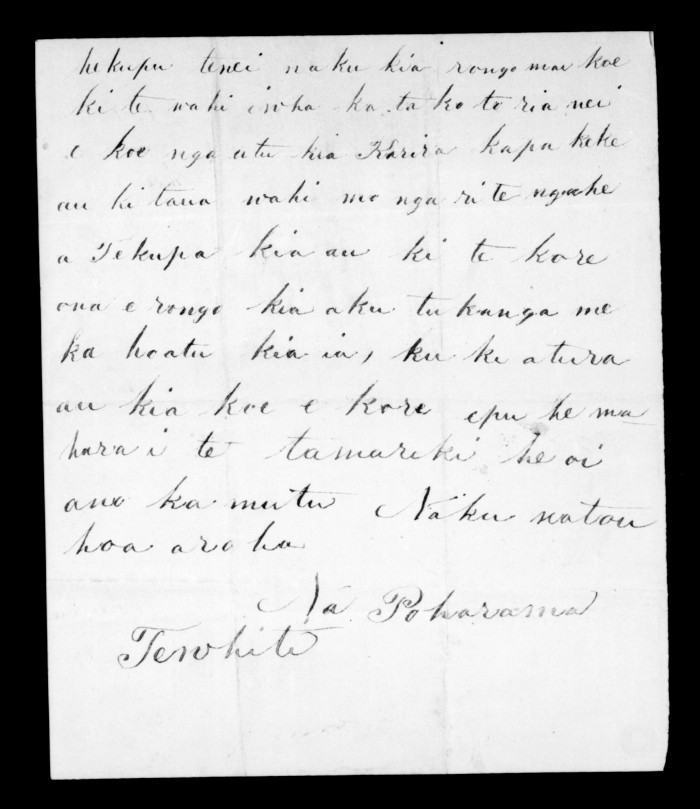 he kupu tenei naku kia rongo mai koe
ki te wahi i wha ka ta ko to ria nei
e koe nga utu kia Karira kapa keke
au ki taua wahi mo nga ri te ngahe
a Te kupa kia au ki te kore
ona e rongo kia aku tu kanga me
ka hoatu kia ia, ku ki atura
au kia koe e kore epu he ma
hara i te tamariki he oi
ano ka mutu Naku na tou
hoa aroha
Na Poharama
Tewhiti